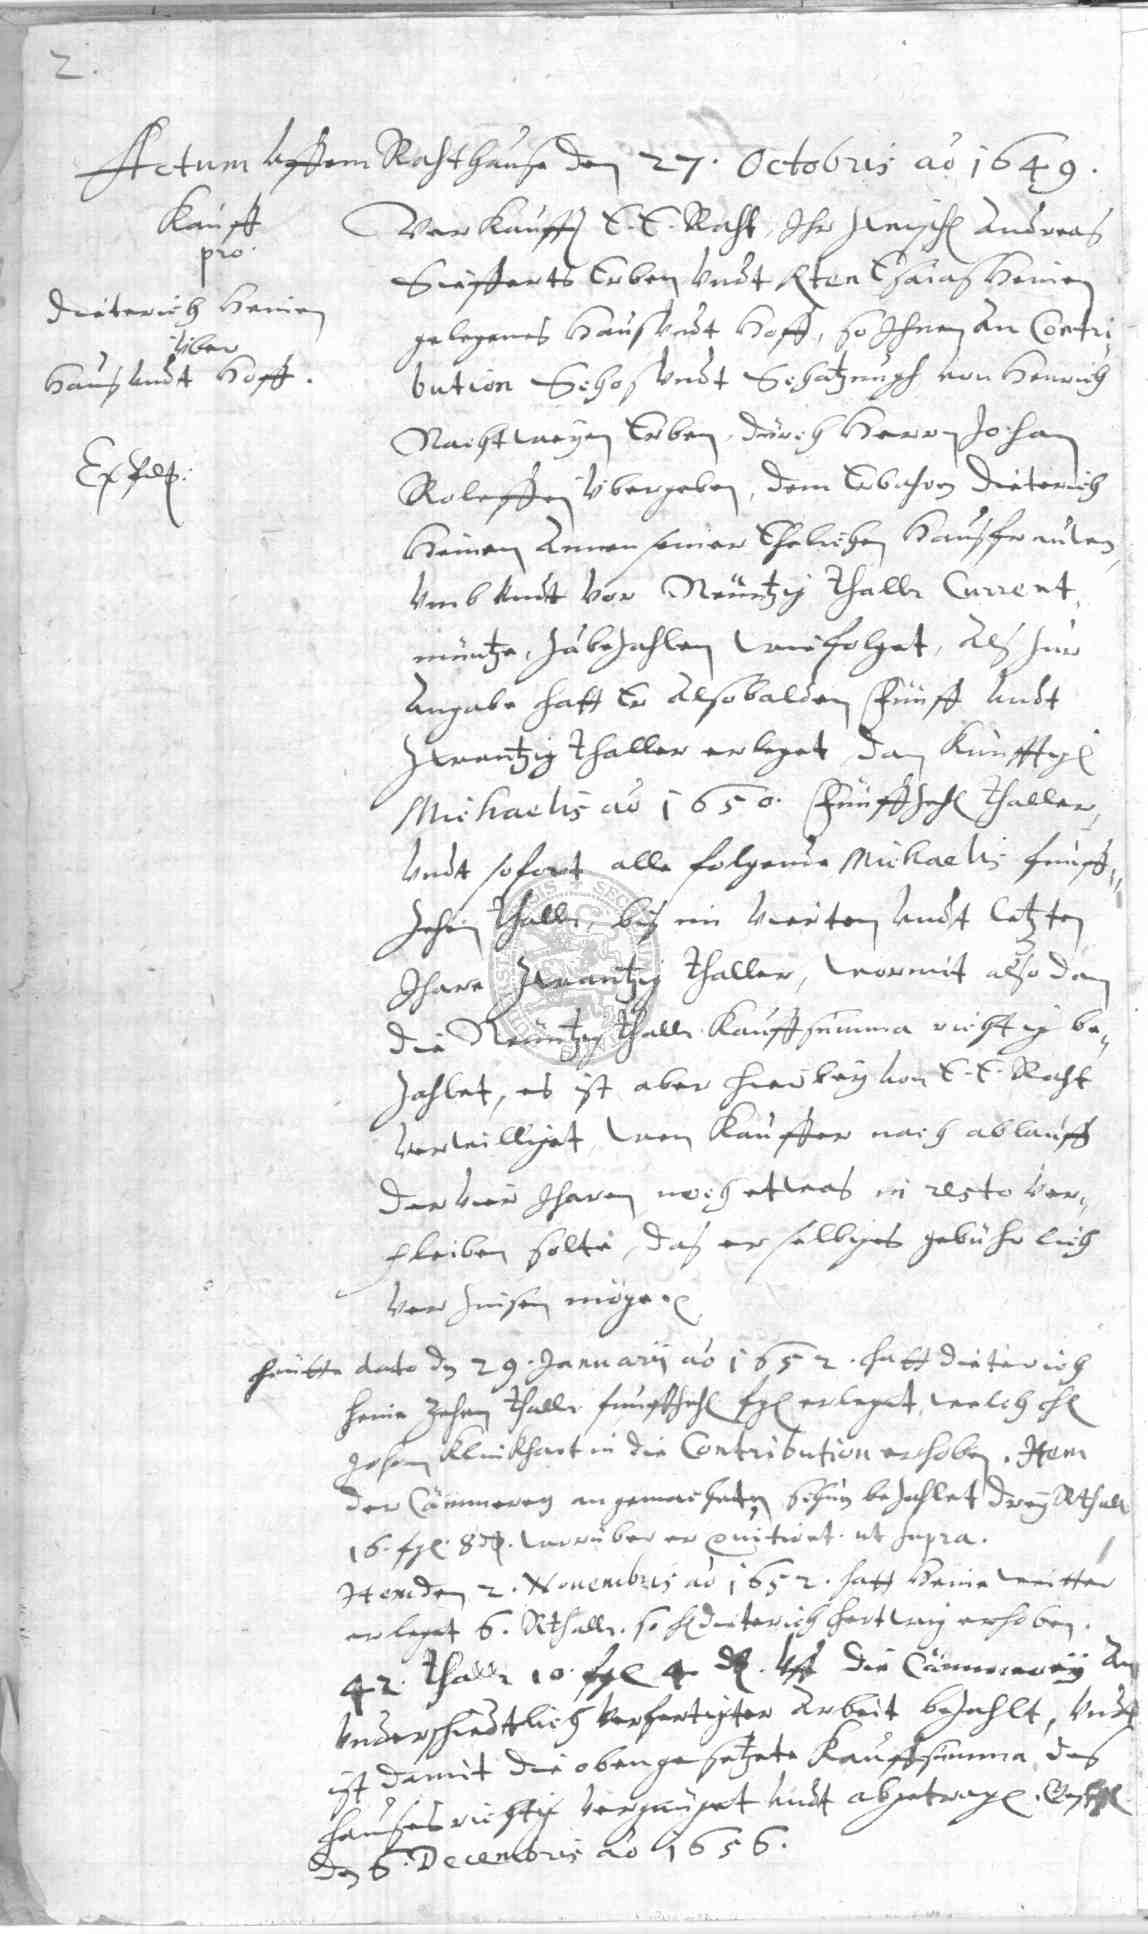 2.
Actum uffem Rahthause den 27. Octobris ao 1649.
Kauff
pro
Dieterich Heinen
über
Hauß undt Hoff.
Verkaufft E. E. Raht, Ihr zwisch Andreas
Siefferts Erben undt Esaias Heinen
gelegenes Hauß undt Hoff, so Ihnen an Contri
bution Schoß undt Schatzung von Henrich
Nachtweyen Erben, durch Herrn Johan
Roleffen übergeben, dem Erbahren Dieterich
Heinen Annen seiner Ehelichen Haußfrauen,
umb undt vor Neuntzig thallr Current,
müntze, zubezahlen wie folget, Alß zur
Angabe hatt Er alsobalden Fünff undt
Zwantzig thaller erleget, dan Künfftig
Michaelis ao 1650. Fünffzehn thaller,
undt sofort alle folgende Michaelis fünff,,
zehen thallr, biß im vierten undt letzten
Jhare Zwantzig thaller, wormit also dan
die Neuntzig thallr Kauffsumma richtig be,,
zahlet, es ist aber hierbey von E. E. Raht
verwilliget, wen Kauffer nach ablauff
der vier Jharen noch etwas in resto ver,,
bleiben solte, daß er selbiges gebührlich
verzinsen möge.
Heutte dato den 29. Januarij ao 1652. hatt Dieterich
Heine zehen thallr fünffzehn fgl erleget, welch
Johan Klinkhart in die Contribution erhoben. Item
der Cämmerey an gemachten bezahlet drey Rthallr
16. fgl. 8 d. worüber er quitiret ut supra.
Item den 2. Novembris ao 1652. hatt Heine weitter
erleget 6. Rthallr. so H Dieterich Hertwig erhoben.
42. thallr 10. fgl 4 d. uff die Cämmerey An
underschiedtlich verfertigter Arbeit bezahlt, undt
ist damit die obengesetzete Kauffsumma des
Hauses richtig vergnüget undt abgetragen.
den 6. Decembris ao 1656.